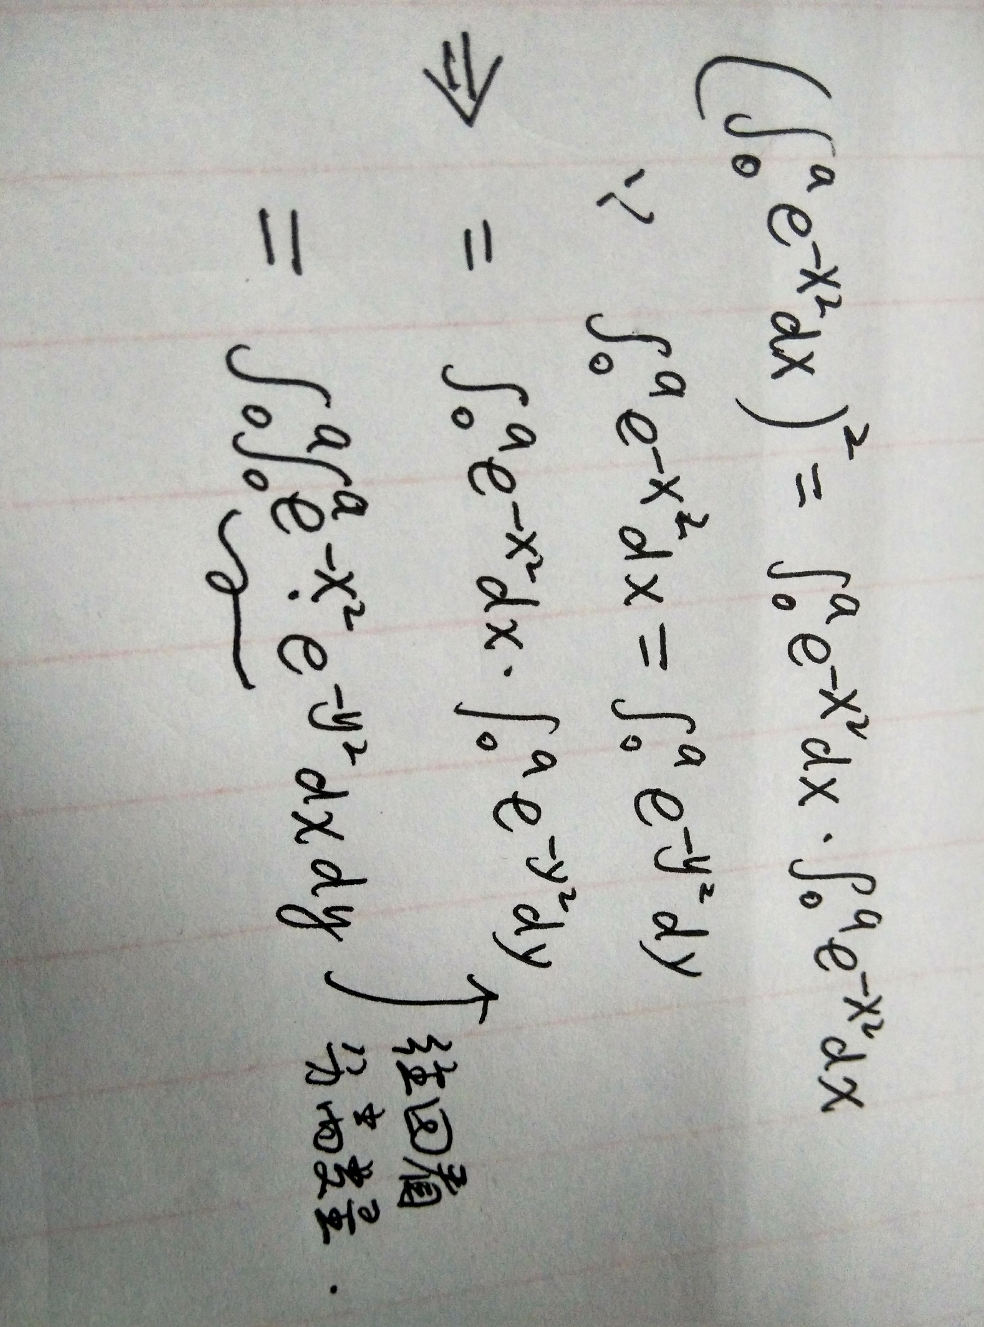 (∫₀ᵃ e^{-x²}dx)² = ∫₀ᵃ e^{-x²}dx · ∫₀ᵃ e^{-x²}dx
∵ ∫₀ᵃ e^{-x²}dx = ∫₀ᵃ e^{-y²}dy
⇒ = ∫₀ᵃ e^{-x²}dx · ∫₀ᵃ e^{-y²}dy
= ∫₀ᵃ∫₀ᵃ e^{-x²} · e^{-y²}dxdy
往回看